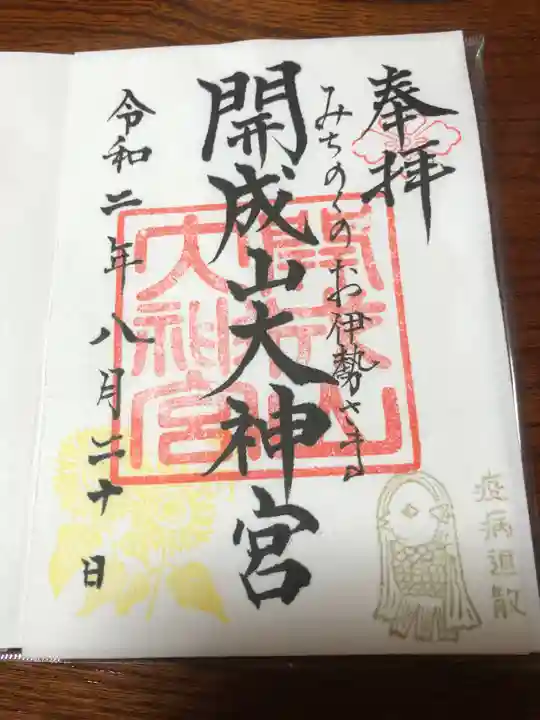 奉拝
みちのくのお伊勢さま
開成山大神宮
開成山
大神宮
令和二年八月二十日
疫病退散